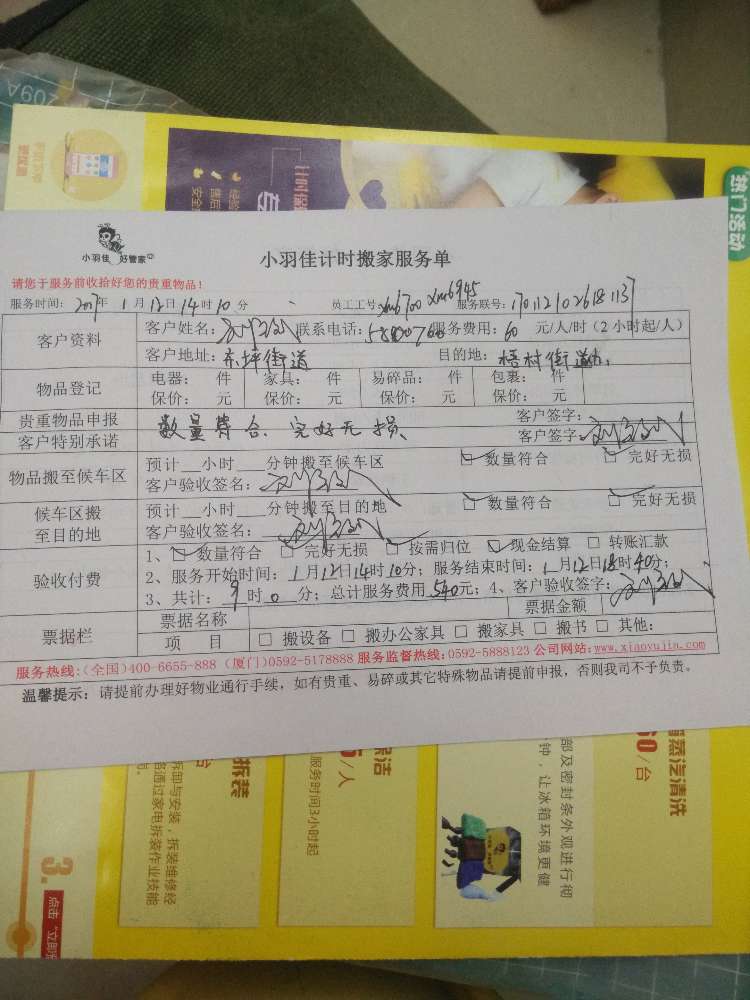 209A
热门活动
小羽佳 好管家
小羽佳计时搬家服务单
请您于服务前收拾好您的贵重物品!
服务时间: 2017年 1月12日14时10分 员工工号: xm6700 xm6945 服务联号:
客户资料
客户姓名: 联系电话: 服务费用: 60 元/人/时(2小时起/人)
客户地址: 东坪街道 目的地: 梧村街道
物品登记
电器: 件 家具: 件 易碎品: 件 包裹: 件
保价: 元 保价: 元 保价: 元 保价: 元
贵重物品申报
客户特别承诺
数量符合、完好无损、
客户签字:
客户签字:
物品搬至候车区
预计__小时___分钟搬至候车区 数量符合 完好无损
客户验收签名:
候车区搬
至目的地
预计__小时___分钟搬至目的地 数量符合 完好无损
客户验收签名:
验收付费
1、 数量符合 完好无损 按需归位 现金结算 转账汇款
2、服务开始时间: 1月12日14时10分; 服务结束时间: 1月12日18时40分;
3、共计: 9时0分; 总计服务费用540元; 4、客户验收签字:
票据栏
票据名称 票据金额
项 目 □ 搬设备 □ 搬办公家具 □ 搬家具 □ 搬书 □ 其他:
服务热线:(全国)400-6655-888 (厦门)0592-5178888 服务监督热线:0592-5888123 公司网站:www.xiaoyujia.com
温馨提示: 请提前办理好物业通行手续, 如有贵重、易碎或其它特殊物品请提前申报, 否则我司不予负责。
蒸汽清洗
60/台
部及密封条外观进行彻
钟, 让冰箱环境更健
保洁
5/人
服务时间3小时起
拆装
台
拆卸与安装, 拆装维修经
名通过家电拆装作业技能
3.